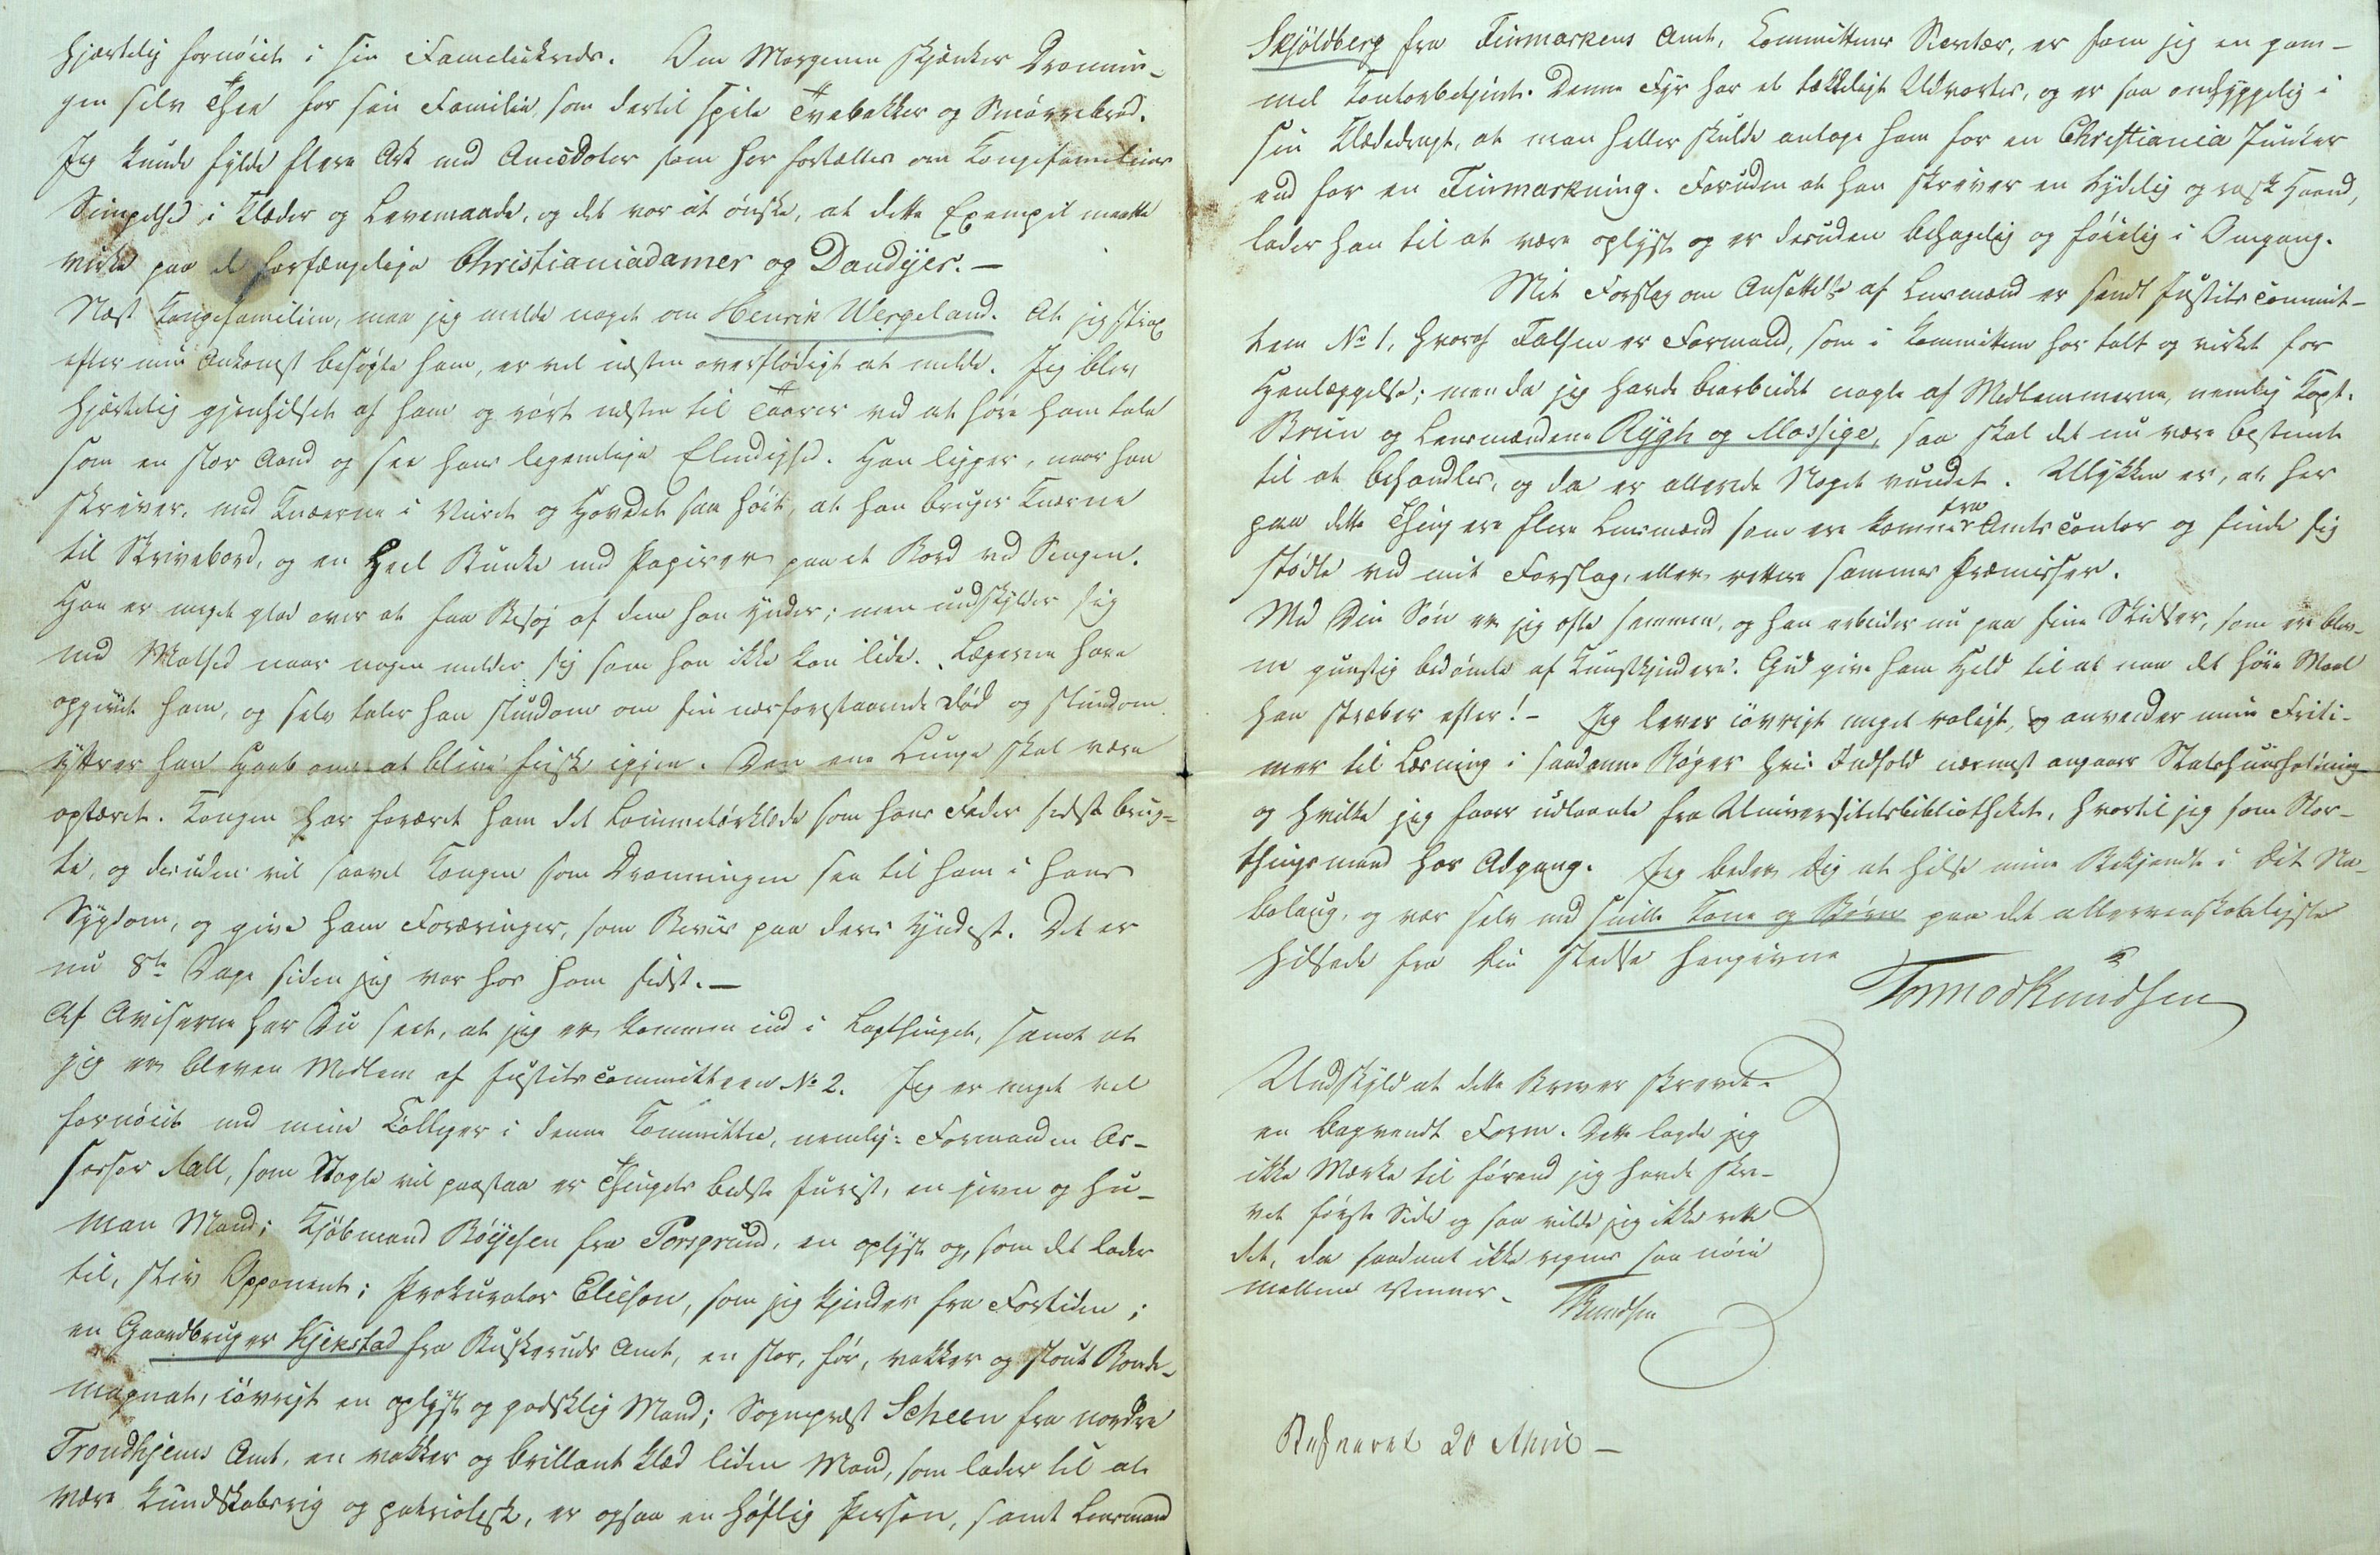 hjærtelig fornöiet i sin Familiekreds. Om Morgenen skjænker Dronnin-
gen selv Thee for sin Familie, som dertil spise Tvebakker og Smörrebröd.
Jeg kunde fylde flere Ark med Anecdoter som her fortælles om Kongefamiliens
Simpelhed i Klæder og Levemaade, og det var at önske, at dette Exempel maatte
virke paa de forfængelige Christianiadamer og Dandyer. —
Næst Kongefamilien, maa jeg melde noget om Henrik Wergeland. At jeg strax
efter min Ankomst besögte ham, er vel næsten overflödigt at melde. Jeg blev
hjærtelig gjenhilset af ham og rört næsten til Taarer ved at höre ham tale
som en stor Aand og see hans legemlige Elendighed. Han ligger, naar han
skriver, med Knæerne i Veiret og Hovedet saa höit, at han bruger Knæerne
til Skrivebord, og en Heel Bunke med Papirer paa et Bord ved Sengen.
Han er meget glad over at faa Besög af dem han ynder; men undskylder sig
med Mathed naar nogen melder sig som han ikke kan lide. Lægerne have
opgivet ham, og selv taler han stundom om sin nærforestaaende Död og stundom
yttrer han Haab om at blive frisk igjen. Den ene Lunge skal være
optæret. Kongen har foræret ham det Lommetörklæde som hans Fader sidst brug-
te, og desuden vil saavel Kongen som Dronningen see til ham i hans
Sygdom, og give ham Foræringer, som Beviis paa deres Yndest. Det er
nu 8te Dage siden jeg var hos ham sidst. —
Af Aviserne har Du seet, at jeg er kommen ind i Lagthinget, samt at
jeg er bleven Medlem af Justitscommitteen No 2. Jeg er meget vel
fornöiet med mine Colleger i denne Committee, nemlig: Formanden As-
sessor Aall, som Nogle vil paastaa er Thingets bedste Jurist, en jevn og hu-
man Mand; Kjöbmand Böyesen fra Porsgrund, en oplyst og, som det lader
til, stiv Opponent; Prokurator Elieson, som jeg kjender fra Fortiden;
en Gaardbruger Kjekstad fra Buskeruds Amt, en stor, för, vakker og stout Bonde-
magnat, iövrigt en oplyst og godslig Mand; Sognepræst Scheen fra nordre
Trondhjems Amt, en vakker og brillant klæd liden Mand, som lader til at
være kundskabsrig og patriotisk, er ogsaa en höflig Person, samt Lensmand
Skjöldberg fra Finmarkens Amt, Committeens Secretær, er som jeg en gam-
mel Contorbetjent. Denne Fyr har et tækkeligt Udvortes, og er saa omhyggelig i
sin Klædedragt, at man heller skulde antage ham for en Christiania Junker
end for en Finmarkning. Foruden at han skriver en tydelig og rask Haand,
lader han til at være oplyst og er desuden behagelig og föielig i Omgang.
Mit Forslag om Ansættelse af Lensmænd er sendt Justitscommit-
teen No 1, hvoraf Falsen er Formand, som i Committeen har talt og virket for
Henlæggelse; men da jeg havde bearbeidet nogle af Medlemmerne, nemlig Capt.
Brun og Lensmændene Rygh og Mossige, saa skal det nu være bestemt
til at behandles, og da er allerede Noget vundet. Ulykken er, at her
paa dette Thing ere flere Lensmænd som ere komne fra Amtscontor og finde sig
stödte ved mit Forslag, eller rettere sammes Præmisser.
Med Din Sön er jeg ofte sammen, og han arbeider nu paa sine Skidser, som ere blev-
ne gunstig bedömte af Kunstkjendere. Gud give ham Held til at naa det höie Maal
han stræber efter! — Jeg lever iövrigt meget roligt, og anvender mine Friti-
mer til Læsning i saadanne Böger hvis Indhold nærmest angaaer Statshuusholdning
og hvilke jeg faaer udlaante fra Universitetsbibliotheket, hvortil jeg som Stor-
thingsmand har Adgang. Jeg beder Dig at hilse mine Bekjendte i Dit Na-
bolaug, og vær selv med snille Kone og Börn paa det allervenskabeligste
hilsede fra Din stedse hengivne
TormodKnudsen
Undskyld at dette Brev er skrevet
en bagvendt Form. Dette lagde jeg
ikke Mærke til förend jeg havde skre-
vet förste Side og saa vilde jeg ikke rette
det, da saadant ikke regnes saa nöie
mellem Venner. TKnudsen
Besvaret 20 April —